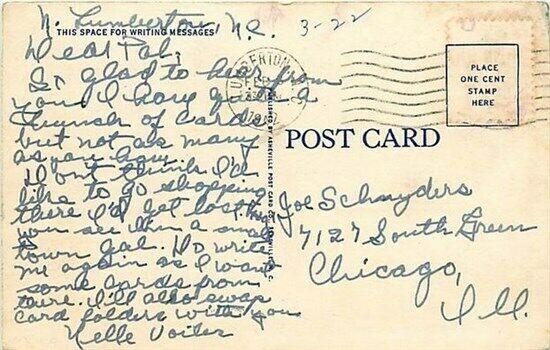 N. Lumberton, N.C. 3-22
THIS SPACE FOR WRITING MESSAGES
Dear Pal,
So glad to hear from
you I have quite a
bunch of cards
but not as many
as you have.
I don't think I'd
like to go shopping
there I'd get lost
you see I'm a small
town gal. Do write
me again as I want
some cards from
there. I'll also swap
card folders with you
Nelle
PUBLISHED BY ASHEVILLE POST CARD CO., ASHEVILLE, N. C.
LUMBERTON
PLACE
ONE CENT
STAMP
HERE
POST CARD
Joe Schnyders
7127 South Green
Chicago,
Ill.